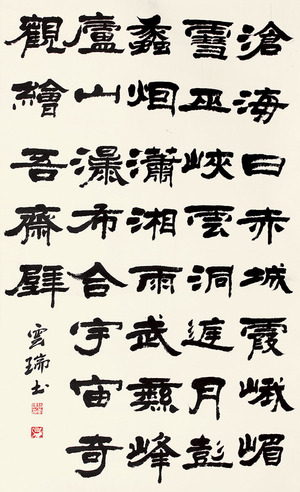 滄海日赤城霞峨嵋
雪巫峽雲洞庭月彭
蠡烟瀟湘雨武彝峰
廬山瀑布合宇宙奇
觀繪吾齋壁
雲瑞书